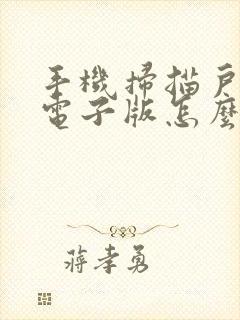 手機掃描戶
電子版怎麼
蔣孝勇